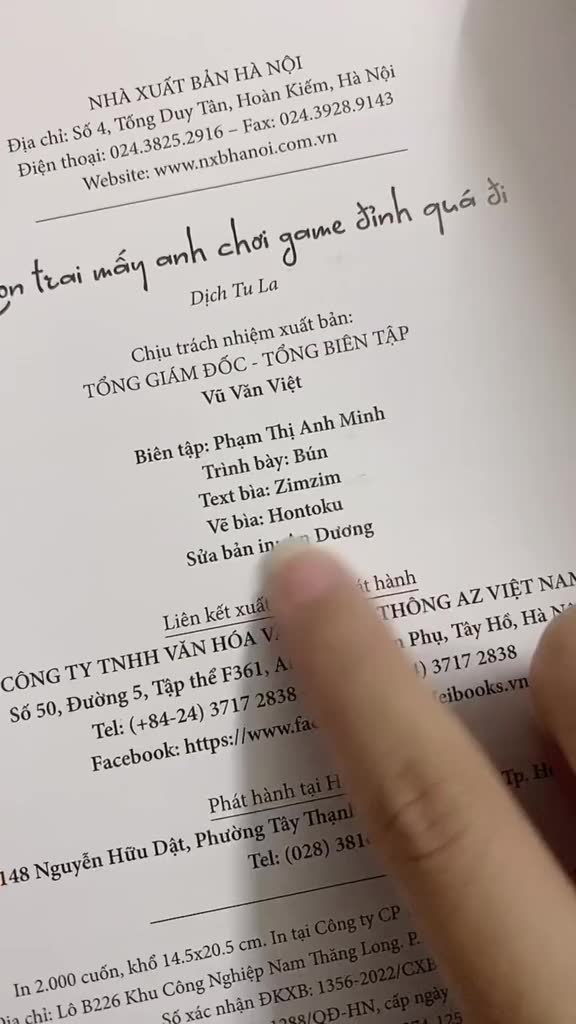 NHÀ XUẤT BẢN HÀ NỘI
Địa chỉ: Số 4, Tống Duy Tân, Hoàn Kiếm, Hà Nội
Điện thoại: 024.3825.2916 – Fax: 024.3928.9143
Website: www.nxbhanoi.com.vn
trai mấy anh chơi game đỉnh quá đi
Dịch Tu La
Chịu trách nhiệm xuất bản:
TỔNG GIÁM ĐỐC - TỔNG BIÊN TẬP
Vũ Văn Việt
Biên tập: Phạm Thị Anh Minh
Trình bày: Bún
Text bìa: Zimzim
Vẽ bìa: Hontoku
Sửa bản in: Dương
Liên kết xuất hành
CÔNG TY TNHH VĂN HÓA THÔNG AZ VIỆT NAM
Số 50, Đường 5, Tập thể F361, Phụ, Tây Hồ, Hà
Tel: (+84-24) 3717 2838 3717 2838
Facebook: https://www.
Phát hành tại Tp.
148 Nguyễn Hữu Dật, Phường Tây Thạnh
Tel: (028)
In 2.000 cuốn, khổ 14.5x20.5 cm. In tại Công ty CP
chỉ: Lô B226 Khu Công Nghiệp Nam Thăng Long. P.
Số xác nhận ĐKXB: 1356-2022/CXB
cấp ngày